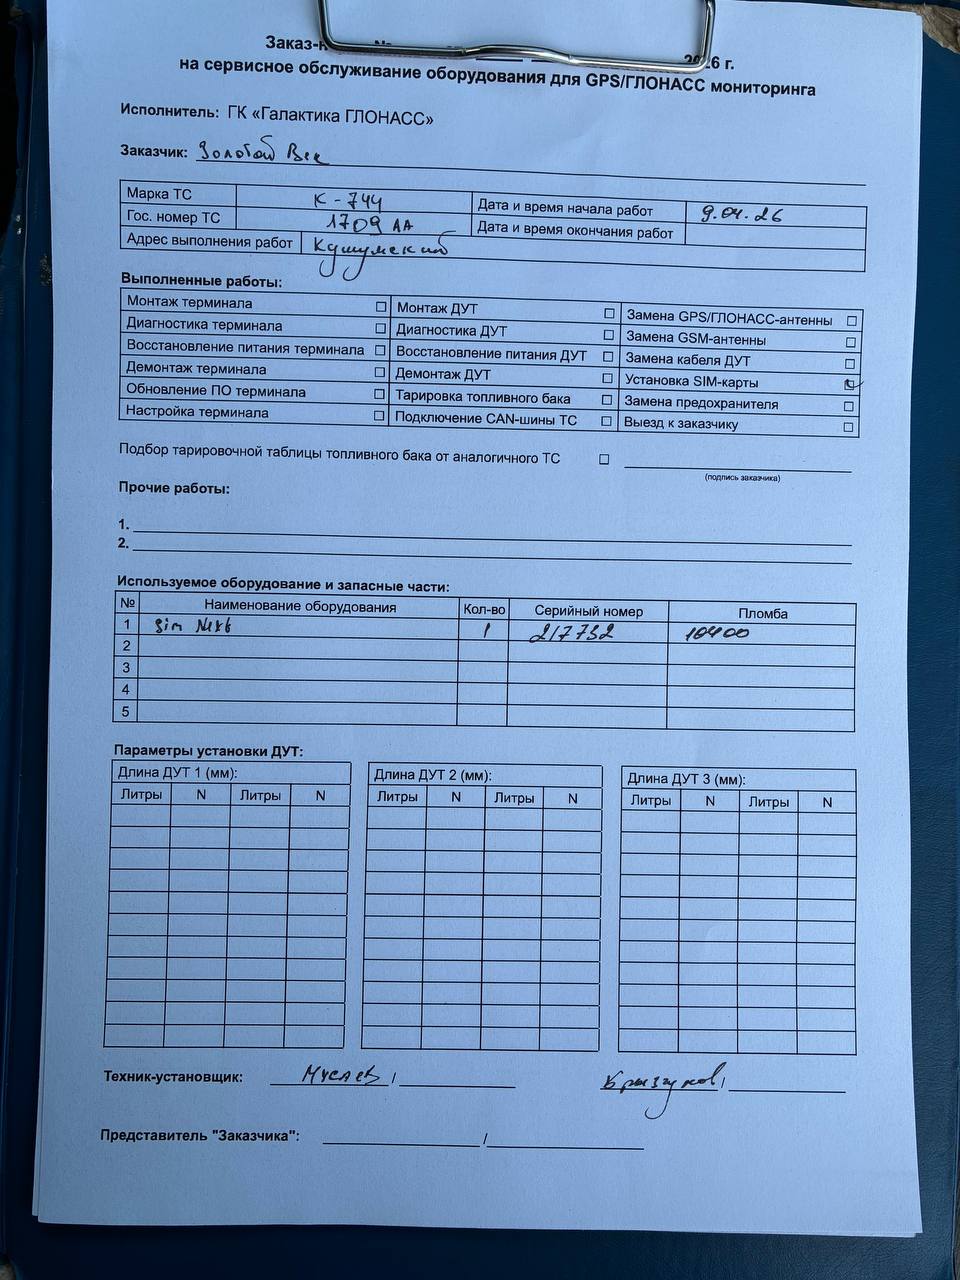 Заказ-н
26 г.
на сервисное обслуживание оборудования для GPS/ГЛОНАСС мониторинга
Исполнитель: ГК «Галактика ГЛОНАСС»
Заказчик: Золотой Век
Марка ТС К-744 Дата и время начала работ 9.04.26
Гос. номер ТС 1709 АА Дата и время окончания работ
Адрес выполнения работ Кушумский
Выполненные работы:
Монтаж терминала ☐ Монтаж ДУТ ☐ Замена GPS/ГЛОНАСС-антенны ☐
Диагностика терминала ☐ Диагностика ДУТ ☐ Замена GSM-антенны ☐
Восстановление питания терминала ☐ Восстановление питания ДУТ ☐ Замена кабеля ДУТ ☐
Демонтаж терминала ☐ Демонтаж ДУТ ☐ Установка SIM-карты ☑
Обновление ПО терминала ☐ Тарировка топливного бака ☐ Замена предохранителя ☐
Настройка терминала ☐ Подключение CAN-шины ТС ☐ Выезд к заказчику ☐
Подбор тарировочной таблицы топливного бака от аналогичного ТС ☐
(подпись заказчика)
Прочие работы:
1.
2.
Используемое оборудование и запасные части:
№ Наименование оборудования Кол-во Серийный номер Пломба
1 Sim 1 217732 10400
2
3
4
5
Параметры установки ДУТ:
Длина ДУТ 1 (мм): Длина ДУТ 2 (мм): Длина ДУТ 3 (мм):
Литры N Литры N Литры N Литры N Литры N Литры N
Техник-установщик: Мусаев / /
Представитель "Заказчика": /